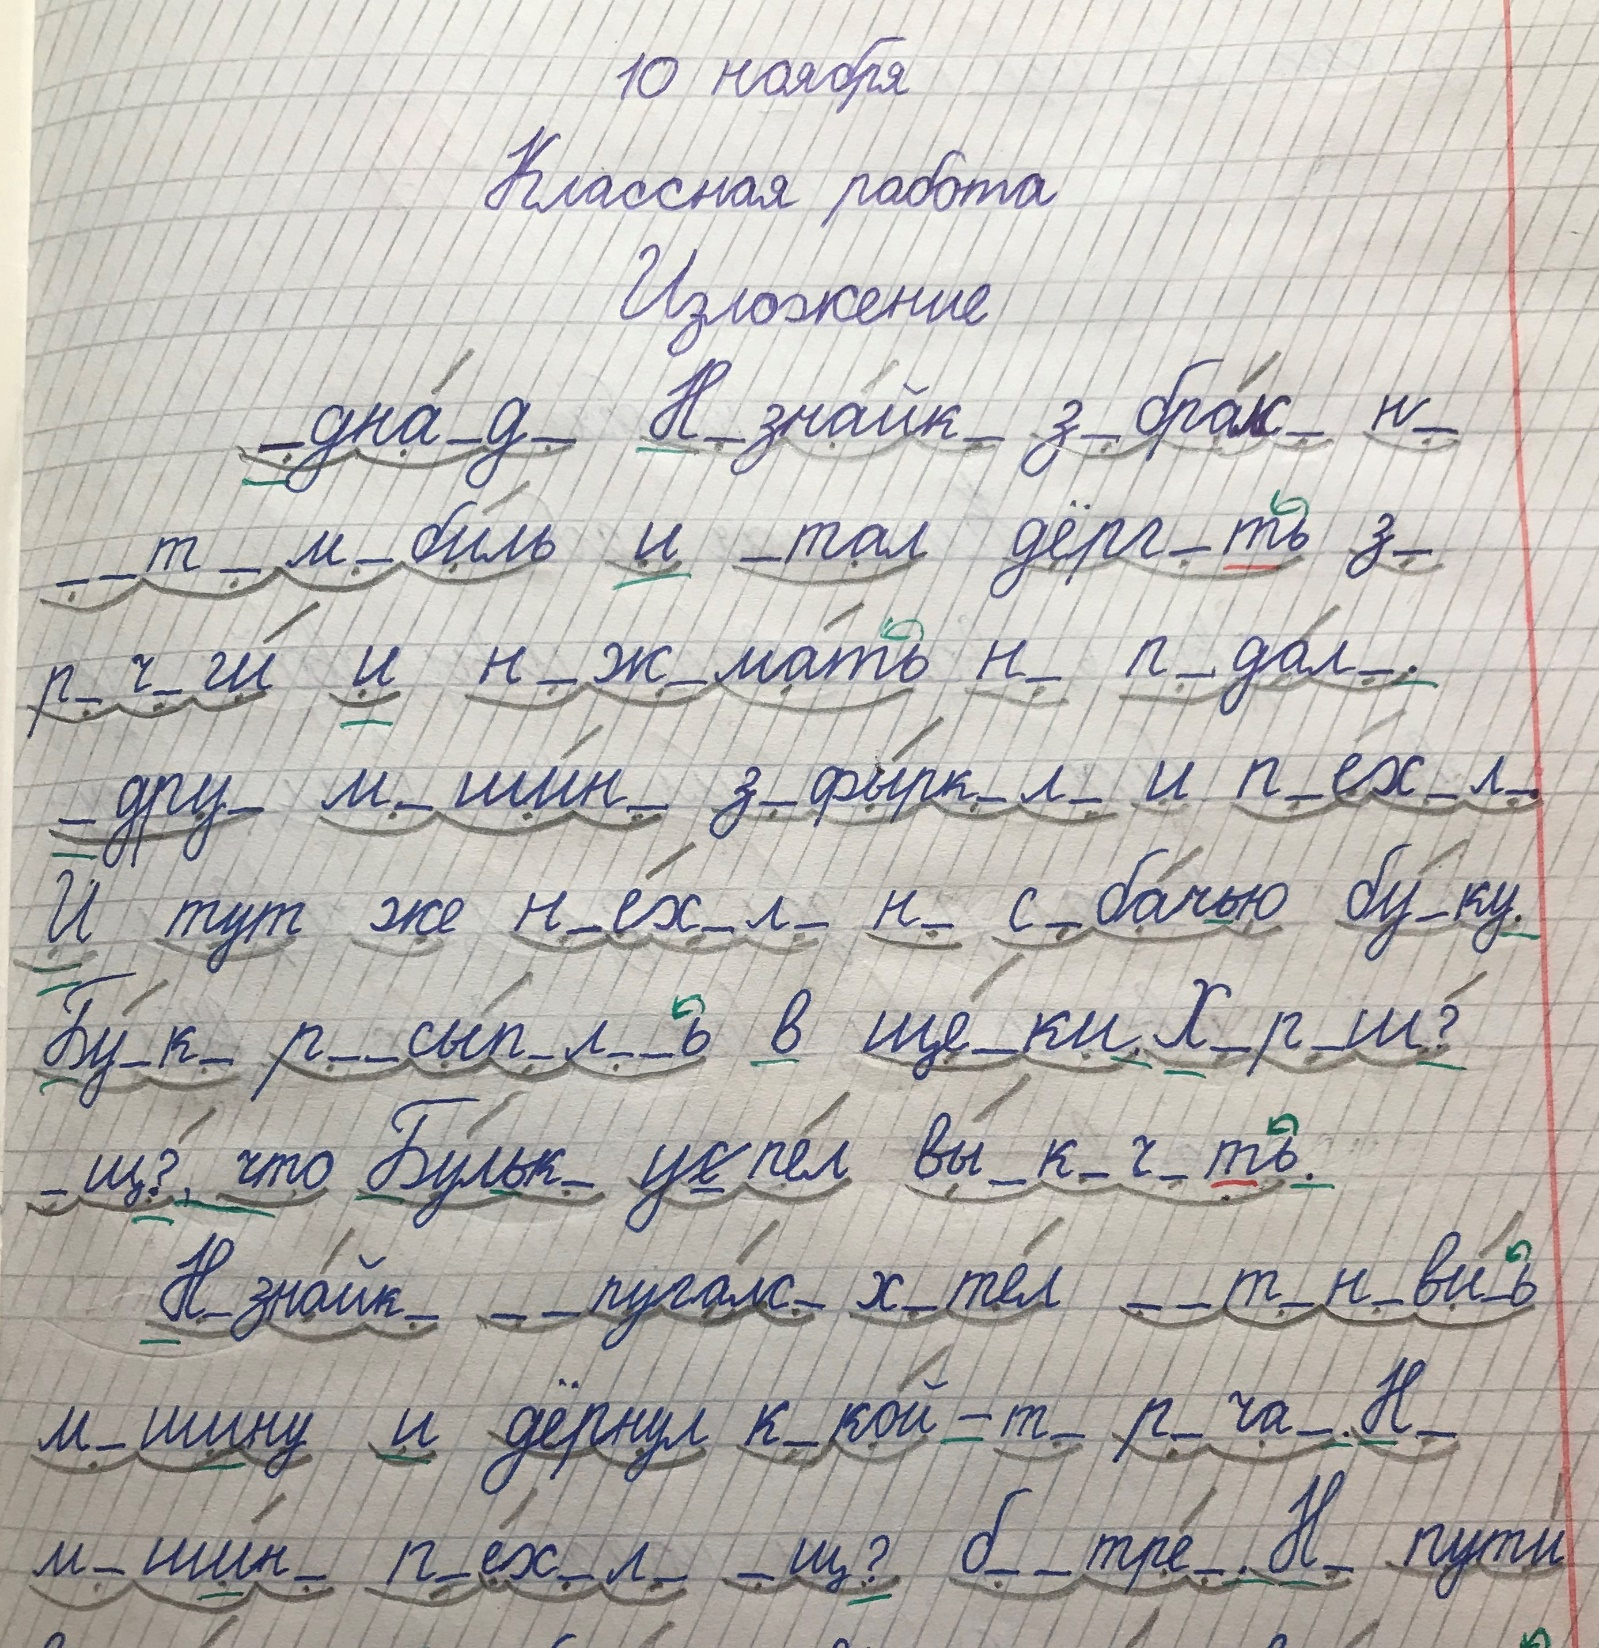 10 ноября
Классная работа
Изложение
_дна́_д_ Н_зна́йк_ з_бра́к_ н_
__т_м_би́ль и _тал дёрг_ть з_
р_ч_ги́ и н_ж_ма́ть н_ п_да́л_.
_дру_ м_ши́н_ з_фы́рк_л_ и п_е́х_л_.
И тут же н_е́х_л_ н_ с_ба́чью бу́_ку.
Бу́_к_ р__сы́п_л__ь в ще́_ки. Х_р_ш?
_щ?, что Бу́льк_ успе́л вы́_к_ч_ть.
Н_зна́йк_ __пуга́лс_ х_те́л __т_н_ви́_ь
м_шину и дёрнул к_ко́й-т_ р_ча_. Н_
м_ши́н_ п_е́х_л_ _щ? б__тре́_. Н_ пути́